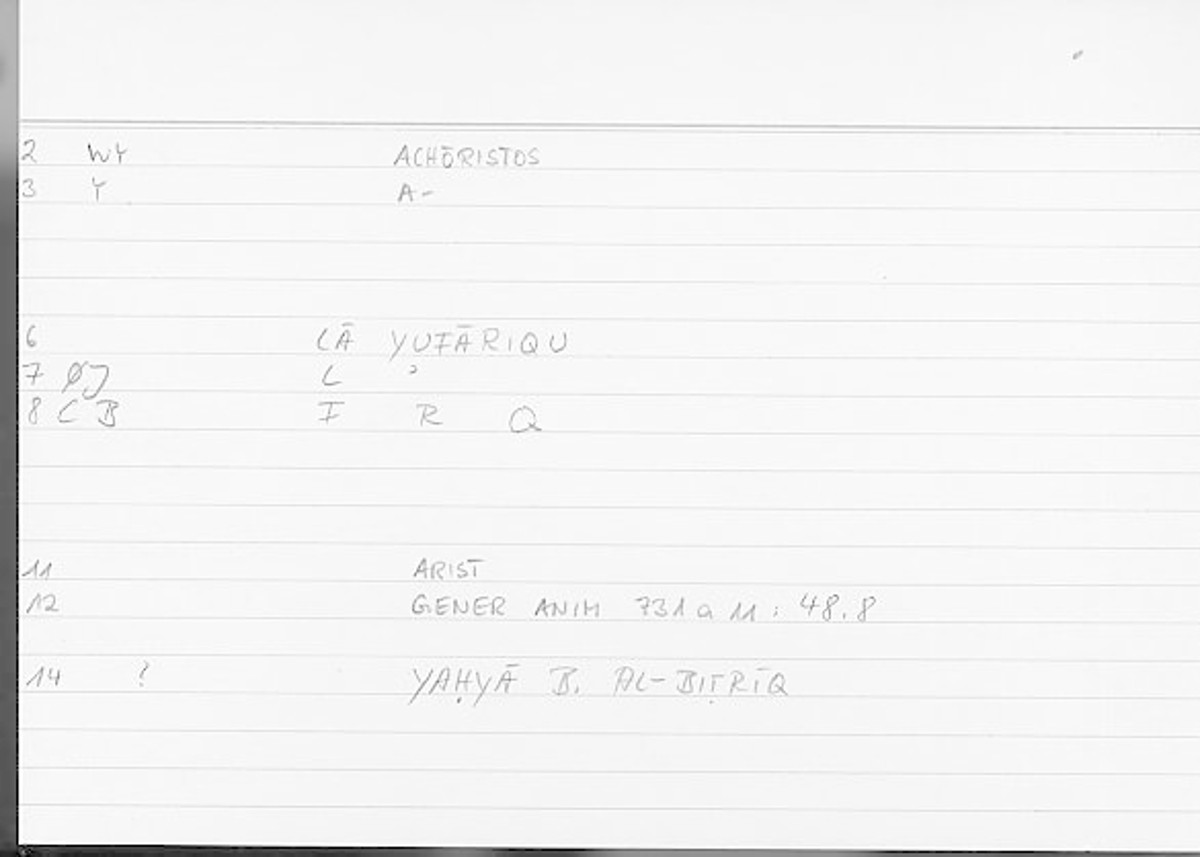 2 WY ACHŌRISTOS
3 Y A-
6 LĀ YUFĀRIQU
7 ØJ L ʾ
8 C B F R Q
11 ARIST
12 GENER ANIM 731 a 11 : 48.8
14 ? YAḤYĀ B. AL-BIṬRĪQ